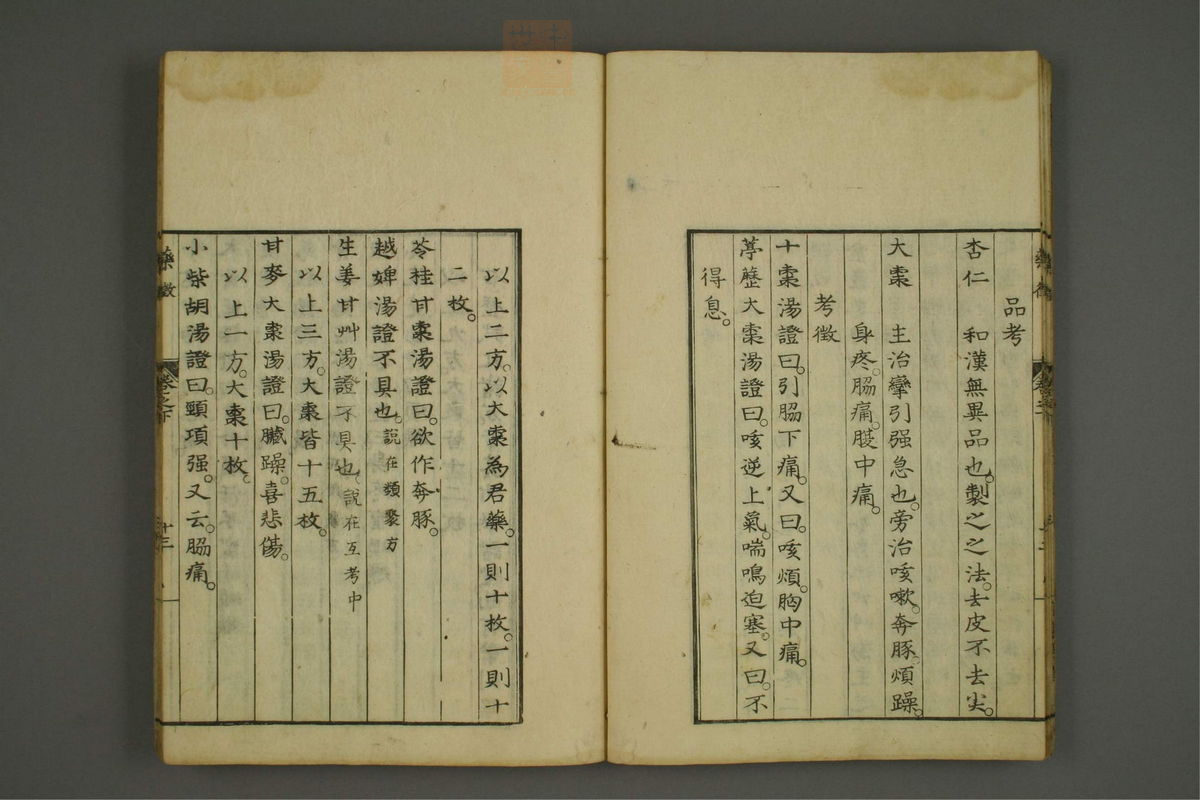 品考
杏仁 和漢無異品也。製之之法。去皮不去尖。
大棗 主治攣引强急也。旁治咳嗽。奔豚。煩躁。
身疼。脇痛。腹中痛。
考徵
十棗湯證曰。引脇下痛。又曰。咳煩。胸中痛。
葶藶大棗湯證曰。咳逆上氣。喘鳴迫塞。又曰。不
得息。
以上二方。以大棗為君藥。一則十枚。一則十
二枚。
苓桂甘棗湯證曰。欲作奔豚。
越婢湯證不具也。說在類聚方
生姜甘艸湯證不具也。說在互考中
以上三方。大棗皆十五枚。
甘麥大棗湯證曰。臟躁。喜悲傷。
以上一方。大棗十枚。
小柴胡湯證曰。頸項强。又云。脇痛。
藥徵 卷之下 十三